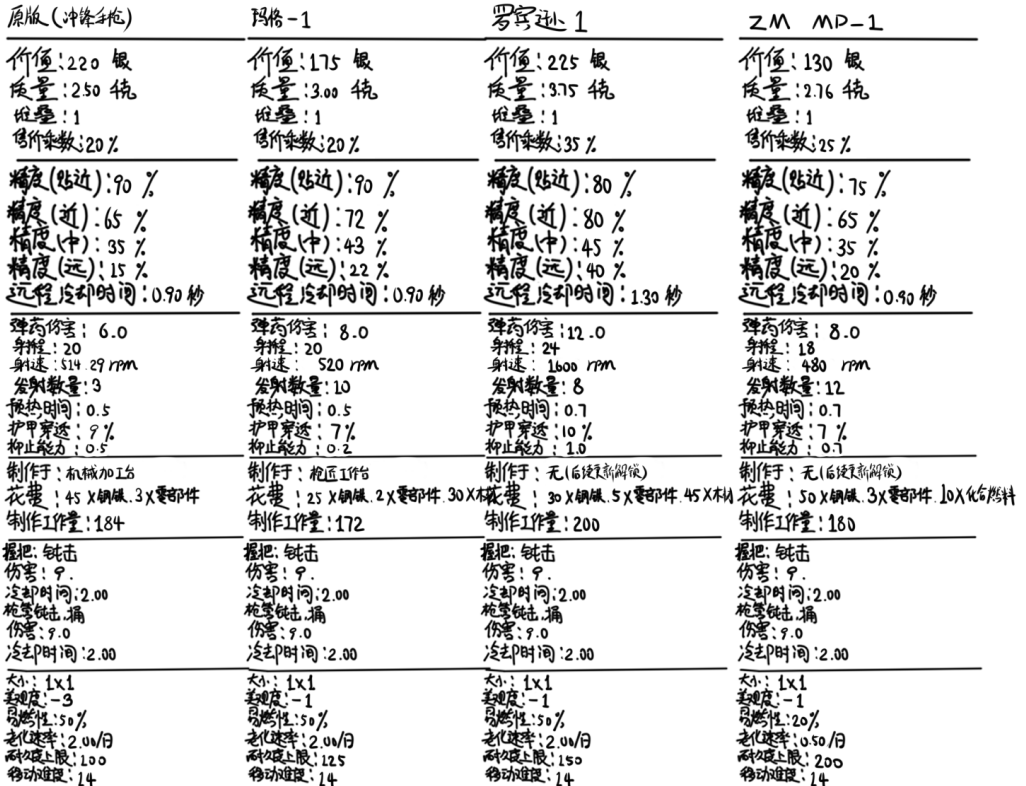 原版(冲锋手枪)
价值:220 银
质量:2.50 千克
堆叠:1
售价乘数:20%
精度(贴近):90 %
精度(近):65 %
精度(中):35 %
精度(远):15 %
远程冷却时间:0.90 秒
弹药伤害:6.0
射程:20
射速:514.29 rpm
发射数量:3
预热时间:0.5
护甲穿透:9%
抑止能力:0.5
制作于:机械加工台
花费:45×钢铁.3×零部件
制作工作量:184
握把:钝击
伤害:9.
冷却时间:2.00
枪管钝击,捅
伤害:9.0
冷却时间:2.00
大小:1x1
美观度:-3
易燃性:50%
老化速率:2.00/日
耐久度上限:100
移动难度:14
玛格-1
价值:175 银
质量:3.00 千克
堆叠:1
售价乘数:20%
精度(贴近):90 %
精度(近):72 %
精度(中):43 %
精度(远):22 %
远程冷却时间:0.90 秒
弹药伤害:8.0
射程:20
射速:520 rpm
发射数量:10
预热时间:0.5
护甲穿透:7%
抑止能力:0.2
制作于:枪匠工作台
花费:25×钢铁.2×零部件.30×木
制作工作量:172
握把:钝击
伤害:9.
冷却时间:2.00
枪管钝击,捅
伤害:9.0
冷却时间:2.00
大小:1x1
美观度:-1
易燃性:50%
老化速率:2.00/日
耐久度上限:125
移动难度:14
罗宾逊 1
价值:225 银
质量:3.75 千克
堆叠:1
售价乘数:35%
精度(贴近):80 %
精度(近):80 %
精度(中):45 %
精度(远):40 %
远程冷却时间:1.30 秒
弹药伤害:12.0
射程:24
射速:1600 rpm
发射数量:8
预热时间:0.7
护甲穿透:10%
抑止能力:1.0
制作于:无(后续更新解锁)
花费:30×钢铁.5×零部件.45×木
制作工作量:200
握把:钝击
伤害:9.
冷却时间:2.00
枪管钝击,捅
伤害:9.0
冷却时间:2.00
大小:1x1
美观度:-1
易燃性:50%
老化速率:2.00/日
耐久度上限:150
移动难度:14
ZM MP-1
价值:130 银
质量:2.76 千克
堆叠:1
售价乘数:25%
精度(贴近):75 %
精度(近):65 %
精度(中):35 %
精度(远):20 %
远程冷却时间:0.90 秒
弹药伤害:8.0
射程:18
射速:480 rpm
发射数量:12
预热时间:0.7
护甲穿透:7%
抑止能力:0.7
制作于:无(后续更新解锁)
花费:50×钢铁.3×零部件.10×化合燃料
制作工作量:180
握把:钝击
伤害:9.
冷却时间:2.00
枪管钝击,捅
伤害:9.0
冷却时间:2.00
大小:1x1
美观度:-1
易燃性:20%
老化速率:0.50/日
耐久度上限:200
移动难度:14